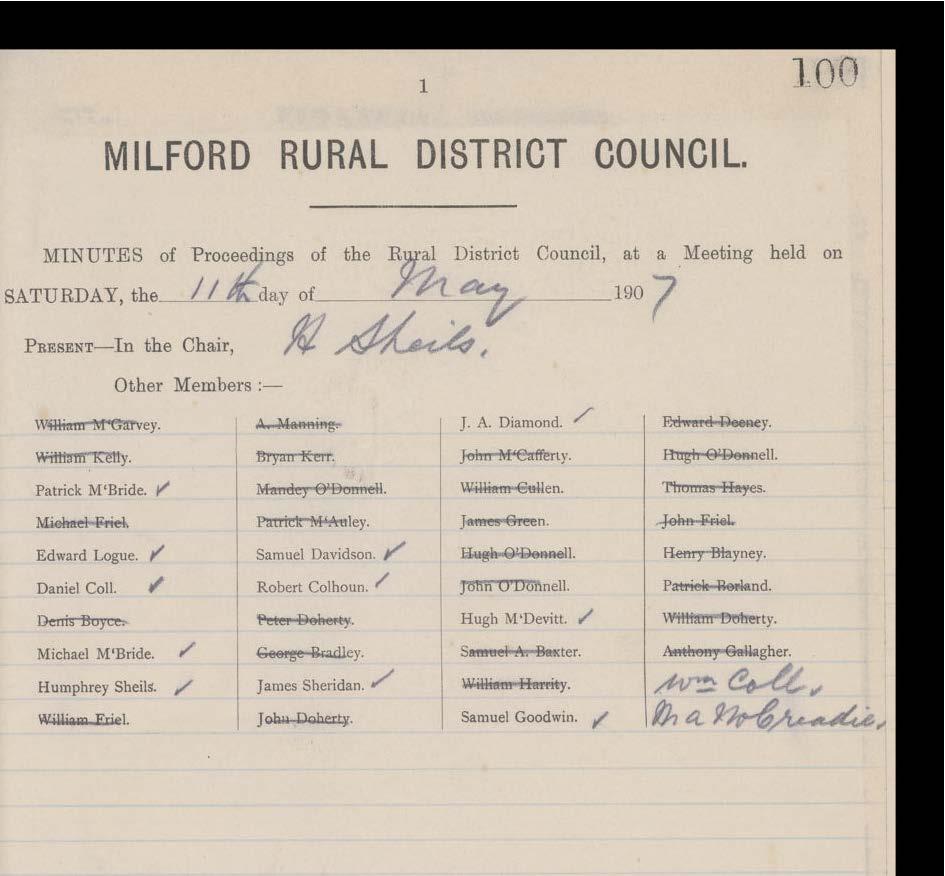 100
1
MILFORD RURAL DISTRICT COUNCIL.
MINUTES of Proceedings of the Rural District Council, at a Meeting held on
SATURDAY, the 11th day of May 1907
PRESENT—In the Chair, H Sheils.
Other Members :—
William M‘Garvey.
William Kelly.
Patrick M‘Bride. ✓
Michael Friel.
Edward Logue. ✓
Daniel Coll. ✓
Denis Boyce.
Michael M‘Bride. ✓
Humphrey Sheils. ✓
William Friel.
A. Manning.
Bryan Kerr.
Mandey O‘Donnell.
Patrick M‘Auley.
Samuel Davidson. ✓
Robert Colhoun. ✓
Peter Doherty.
George Bradley.
James Sheridan. ✓
John Doherty.
J. A. Diamond. ✓
John M‘Cafferty.
William Cullen.
James Green.
Hugh O‘Donnell.
John O‘Donnell.
Hugh M‘Devitt. ✓
Samuel A. Baxter.
William Harrity.
Samuel Goodwin. ✓
Edward Deeney.
Hugh O‘Donnell.
Thomas Hayes.
John Friel.
Henry Blayney.
Patrick Borland.
William Doherty.
Anthony Gallagher.
Wm Coll.